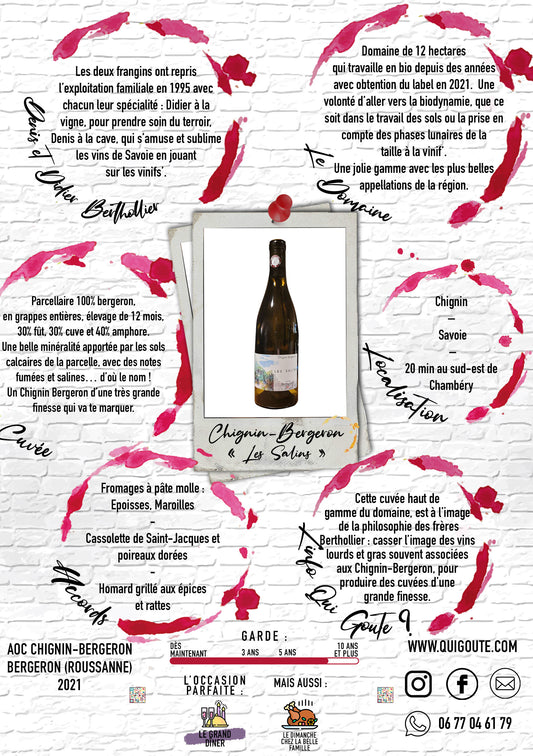 Les deux frangins ont repris
l'exploitation familiale en 1995 avec
chacun leur spécialité : Didier à la
vigne, pour prendre soin du terroir,
Denis à la cave, qui s'amuse et sublime
les vins de Savoie en jouant
sur les vinifs'.
Denis et Didier Berthollier
Domaine de 12 hectares
qui travaille en bio depuis des années
avec obtention du label en 2021. Une
volonté d'aller vers la biodynamie, que ce
soit dans le travail des sols ou la prise en
compte des phases lunaires de la
taille à la vinif'.
Une jolie gamme avec les plus belles
appellations de la région.
Le Domaine
Parcellaire 100% bergeron,
en grappes entières, élevage de 12 mois,
30% fût, 30% cuve et 40% amphore.
Une belle minéralité apportée par les sols
calcaires de la parcelle, avec des notes
fumées et salines... d'où le nom !
Un Chignin Bergeron d'une très grande
finesse qui va te marquer.
Cuvée
Chignin-Bergeron
« Les Salins »
Chignin
–
Savoie
–
20 min au sud-est de
Chambéry
Localisation
Fromages à pâte molle :
Epoisses, Maroilles
-
Cassolette de Saint-Jacques et
poireaux dorées
-
Homard grillé aux épices
et rattes
Accords
Cette cuvée haut de
gamme du domaine, est à l'image
de la philosophie des frères
Berthollier : casser l'image des vins
lourds et gras souvent associées
aux Chignin-Bergeron, pour
produire des cuvées d'une
grande finesse.
L'info Qui Goute ?
AOC CHIGNIN-BERGERON
BERGERON (ROUSSANNE)
2021
GARDE :
DÈS
MAINTENANT
3 ANS
5 ANS
10 ANS
ET PLUS
L'OCCASION
PARFAITE :
LE GRAND
DÎNER
MAIS AUSSI :
LE DIMANCHE
CHEZ LA BELLE
FAMILLE
WWW.QUIGOUTE.COM
06 77 04 61 79